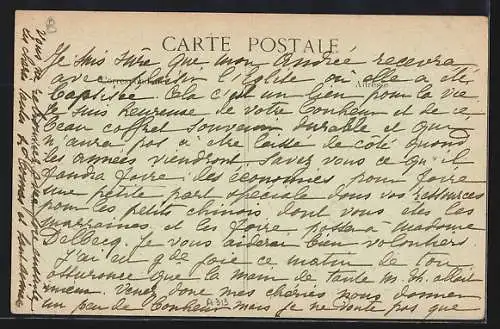 8
CARTE POSTALE
Correspondance
Adresse
Je suis sûre que mon Andrée recevra
avec plaisir l'Eglise où elle a été
baptisée. Cela c'est un lien pour la vie
Je suis heureuse de votre bonheur et de ce
beau coffret souvenir durable et que
n'aura pas à être laissé de côté quand
les années viendront. Savez vous ce qu'il
faudra faire, des économies pour faire
une petite part spéciale dans vos ressources
pour les petits chinois, dont vous êtes les
marraines, et les faire passer à Madame
Delbecq. Je vous aiderai bien volontiers
J'ai eu gde joie ce matin de ton
assurance que la main de tante M. Th. allait
mieux. Venez donc mes chéries nous donner
un peu de bonheur mais je ne doute pas que
A 313